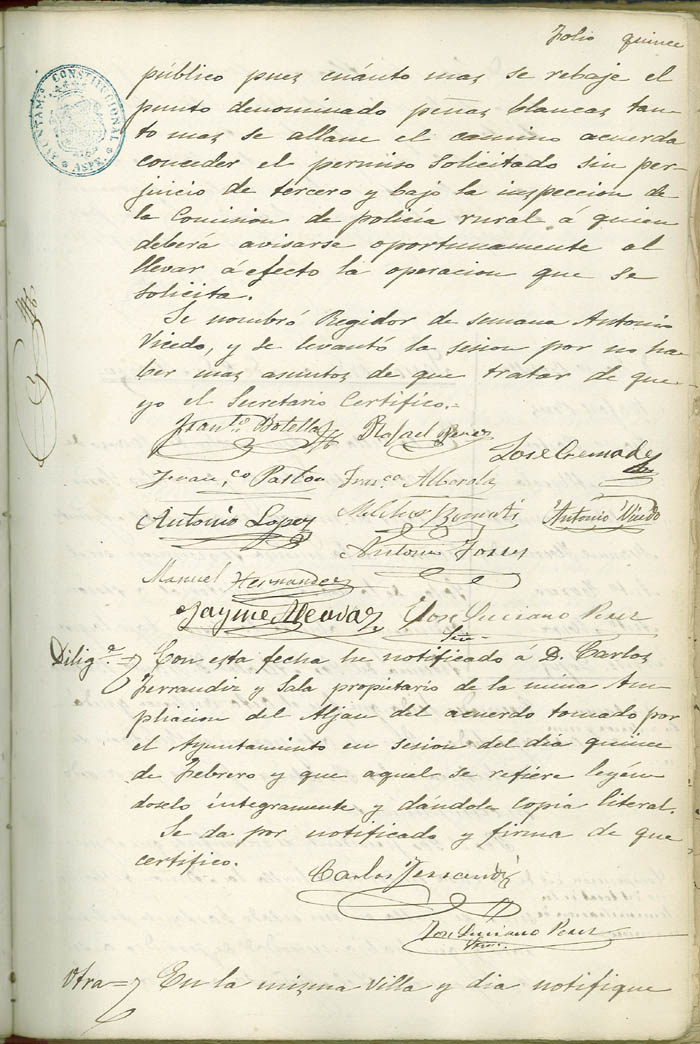 Folio quince
AYUNTAM.º CONSTITUCIONAL
ASPE
público pues cuánto mas se rebaje el
punto denominado peñas blancas tan-
to mas se allane el camino acuerda
conceder el permiso solicitado sin per-
juicio de tercero y bajo la inspeccion de
la Comision de policía rural á quien
deberá avisarse oportunamente al
llevar á efecto la operacion que se
solicita.
Se nombró Regidor de semana Antonio
Vicedo, y se levantó la sesion por no ha-
ber mas asuntos de que tratar de que
yo el Secretario Certifico.=
Botella Rafael Perez
José Cremades
Pastor Fran.co Alberola
Antonio Lopez Antonio Vicedo
Antonio Torres
Manuel Hernandez
Jayme Alcovas José Luciano Perez
Srio
Dilig.ª = Con esta fecha he notificado á D. Carlos
Ferrandiz y Sala propietario de la mina Am-
pliacion del Aljau del acuerdo tomado por
el Ayuntamiento en sesion del dia quince
de Febrero y que aquel se refiere leyén
doselo íntegramente y dándole copia literal.
Se da por notificado y firma de que
certifico.
Carlos Ferrandiz
José Luciano Perez
Srio.
Otra = En la misma villa y dia notifique